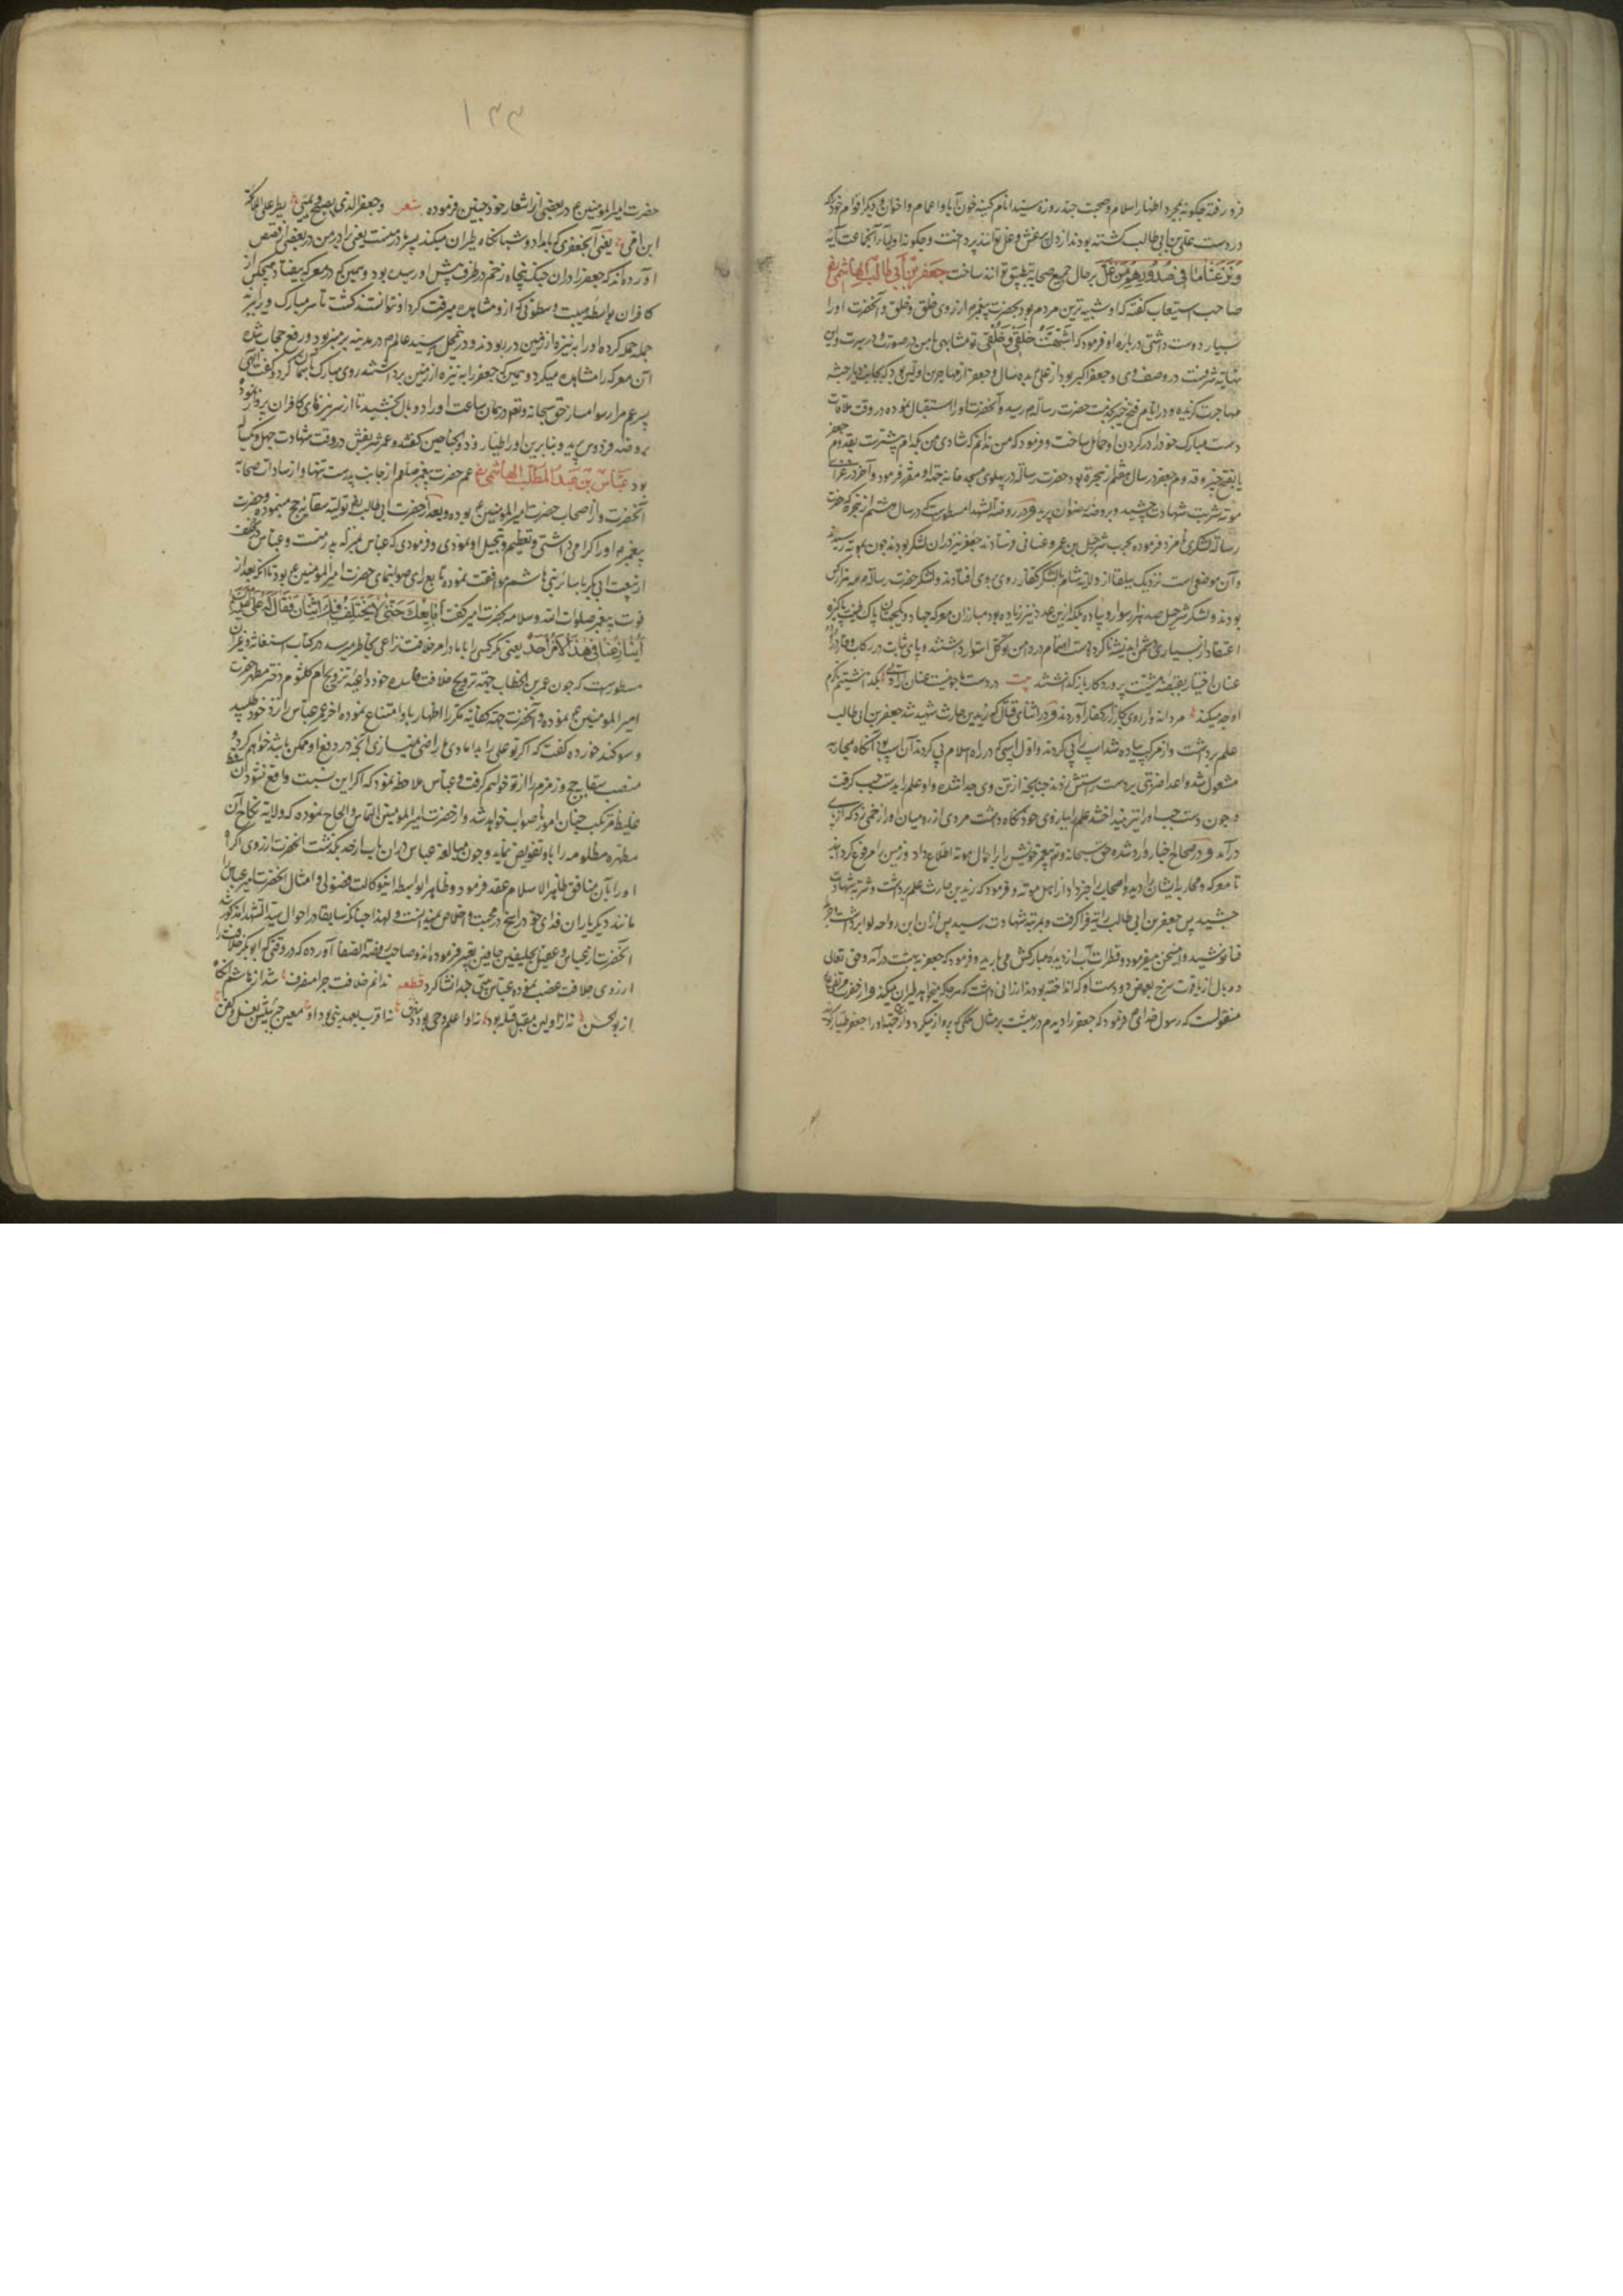 فرو رفته چکونه بمجرد اظهار اسلام وصحبت چند روزه سید انام کینه خون آبا و اعمام واخوان و دیکر اقوام خود که
در دست علی بن ابی طالب کشته بودند از دل بی غش و غل توانند پرداخت وچکونه اولیاء آنجماعت آیه
وَنَزَعْنَا مَا فِی صُدُورِهِم مِّنْ غِلٍّ بر حال جمیع صحابه تطبیق توانند ساخت جَعفَر بنِ اَبی طالب الهاشمی رض
صاحب استیعاب کفته که او شبیه ترین مردم بود بحضرت پیغمبر م از روی خلق وخلق و آنحضرت اورا
بسیار دوست داشتی و درباره او فرمود که اَشْبَهْتَ خَلْقِی وَخُلُقِی تو مشابهی با من در صورت و در سیرت واین
نهایة شرفست در وصف وی وجعفر اکبر بود از علی بده سال وجعفر از مهاجرین اولین بود که بجانب دیار حبشه
مهاجرت کزیده و در ایام فتح خیبر بخدمت حضرت رسالة م رسید و آنحضرت اورا استقبال نموده در وقت ملاقات
دست مبارک خود را در کردن او حمایل ساخت وفرمود که من ندانم که شادی من بکدام بیشترست بقدوم جعفر
یا بفتح خیبر وقدوم جعفر در سال هفتم از هجرة بود حضرت رسالة در پهلوی مسجد خانه جهة او مقرر فرمود وآخر در غزای
موته شربت شهادت چشید و بروضه رضوان پرید و در روضة الشهدا مسطورست که در سال هشتم از هجرة که حضرت
رسالة لشکری نامزد فرموده بحرب شرحبیل بن عمرو غسانی فرستادند جعفر نیز در ان لشکر بود وچون بموته رسیدند
و آن موضعی است نزدیک ببلقا از ولایة شام با لشکر کفار روی بروی افتادند ولشکر حضرت رسالة م سه هزار کس
بودند ولشکر شرحبیل صد هزار سوار و پیاده بلکه ازین عدد نیز زیاده بود مبارزان معرکه جهاد و یکجهتان پاک طینت پاکیزه
اعتقاد از بسیاری دشمن اندیشه ناکرده دست اعتصام در دامن توکل استوار داشتند وپای ثبات در رکاب وقار آورده
عنان اختیار بقبضه مشیت پروردکار باز کذاشتند بیت در دست ما چو نیست عنان ارادتی بکذاشتیم تا کرم
او چه میکند مردانه وار روی بکارزار کفار آوردند و در اثنای قتال که زید بن حارث شهید شد جعفر بن ابی طالب
علم برداشت واز مرکب پیاده شد اسپ را پی کردند و اول اسپی که در راه اسلام پی کردند آن اسپ بود آنکاه بمحاربه
مشغول شد واعدا ضربتی بر دست راستش زدند چنانچه از تن وی جدا شده واو علم را بدست چپ کرفت
وچون دست چپ اورا نیز بینداختند علم را ببازوی خود نکاه داشت مردی از رومیان اورا زخمی زد که از پای
درآمد و در صحاح اخبار وارد شده حق سبحانه وتع پیغمبر خویش را از احوال موته اطلاع داد و زمین را مرفوع کردانید
تا معرکه ومحاربه ایشان را دید واصحاب را خبر داد از اهل موته و فرمود که زید بن حارث علم برداشت وشربت شهادت
چشید پس جعفر بن ابی طالب رایت فرا کرفت و بمرتبه شهادت رسید پس از ان ابن رواحه لوا برداشت
فنا نوشید و این سخن میفرمود وقطرات آب از دیده مبارکش می بارید وفرمود که جعفر به بهشت درآمد وحق تعالی
دو بال از یاقوت سرخ بعوض دو دست او که انداخته بودند ارزانی داشت که هر جا که میخواهد طیران میکند واز حضرت مرتضی
منقولست که رسول خدای م فرمود که جعفر را دیدم در بهشت بر مثال ملکی که پرواز میکرد واز جهة او را جعفر طیار کویند
۱۳۳
حضرت امیر المومنین ع در بعضی از اشعار خود چنین فرموده شعر وجعفر الذی یضحی ویمسی یطیر مع الملائکة
ابن امی یعنی آن جعفری که بامداد و شبانکاه طیران میکند پسر مادر منست یعنی برادر من در بعضی از قصص
آورده اند که جعفر را در ان جنک پنجاه زخم در طرف پیش او رسیده بود وهمین که در معرکه بیفتاد هیچکس از
کافران بواسطه هیبت و سطوتی که از و مشاهده میرفت کرد او نتوانستند کشت تا سر مبارک ویرا ببرند
جمله حمله کرده اورا به نیزه از زمین در ربودند و در انمحل سید عالم م در مدینه بر منبر بود و رفع حجاب شده
آن معرکه را مشاهده میکرد وهمین که جعفر را به نیزه از زمین برداشتند روی مبارک باسمان کرد وکفت الهی
پسر عم مرا رسوا مساز حق سبحانه وتع در همان ساعت اورا دو بال بخشید تا از سر نیزهای کافران پرواز نموده
بروضه فردوس پرید و بنا برین اورا طیار و ذو الجناحین کفتند وعمر شریفش در وقت شهادت چهل ویکسال
بود عَبّاس بن عَبدُ المطّلب الهاشمی رض عم حضرت پیغمبر صلعم از جانب پدرست تنها و از سادات صحابه
آنحضرت و از اصحاب حضرت امیر المومنین ع بوده وبعد از حضرت ابی طالب رض تولیة سقایه حج مینموده وحضرت
پیغمبر م اورا کرامی داشتی وتعظیم وتبجیل او نمودی وفرمودی که عباس بمنزله پدر منست وعباس در تخلف
از بیعت ابی بکر با سائر بنی هاشم موافقت نموده تابع رای صوابنمای حضرت امیر المومنین ع بود تا انکه بعد از
فوت پیغمبر صلوات الله وسلامه بحضرت امیر کفت اُبَایِعُکَ حَتّی لا یَختَلِفَ فِیکَ اثنان فَقالَ لَهُ عَلِی
یُنازِعُنا فی هذا الاَمرِ اَحَدٌ یعنی مکر کسی را با ما در امر خلافت نزاعی بخاطر میرسد در کتاب استغاثه وغیر ان
مسطورست که چون عمر بن الخطاب جهة ترویج خلافت فاسده خود داعیه تزویج ام کلثوم دختر مطهره حضرت
امیر المومنین ع نموده و آنحضرت جهة مکرر اظهار ابا وامتناع نموده اخر عمر عباس را نزد خود طلبید
و سوکند خورده کفت که اکر تو علی را بدامادی من راضی نمیسازی آنچه در دفع او ممکن باشد خواهم کرد و
منصب سقایه حج و زمزم را از تو خواهم کرفت وعباس ملاحظه نمود که اکر این نسبت واقع نشود آن فظ
غلیظ مرتکب چنان امور ناصواب خواهد شد و از حضرت امیر المومنین التماس والحاح نموده که ولایة نکاح آن
مطهره مظلومه را باو تفویض نماید و چون مبالغه عباس در ان باب از حد بکذشت انحضرت از روی اکراه
اورا بآن منافق ظاهر الاسلام عقد فرمود و ظاهرا بواسطه اینوکالت فضولی و امثال آنحضرت امیر عباس را
مانند دیکر یاران فدای خود راسخ در محبت واخلاص نمیدانست ولهذا چنانکه سابقا در احوال سید الشهدا مذکور شد
آنحضرت از عباس وعقیل بجلیفین جافین تعبیر فرموده اند و صاحب روضة الصفا آورده که در وقتی که ابو بکر خلافت را
از روی خلافت غصب نموده عباس بیتی چند انشا کرد قطعه ندانم خلافت چرا منصرف شد از هاشم آنکاه
از بو الحسن نه زاولین مقبل قبله بود نه او اعلم وحی بود و سنن نه اقرب بعهد نبی بود او معین جبرئیلش بغسل و کفن